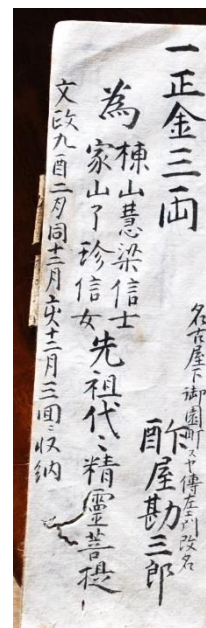 一正金三両
名古屋下御園町スヤ傳左ヱ門改名
酢屋勘三郎
為
棟山慧梁信士
家山了珍信女
先祖代々精霊菩提
文政九酉二月同十二月戌十二月三回ニ収納